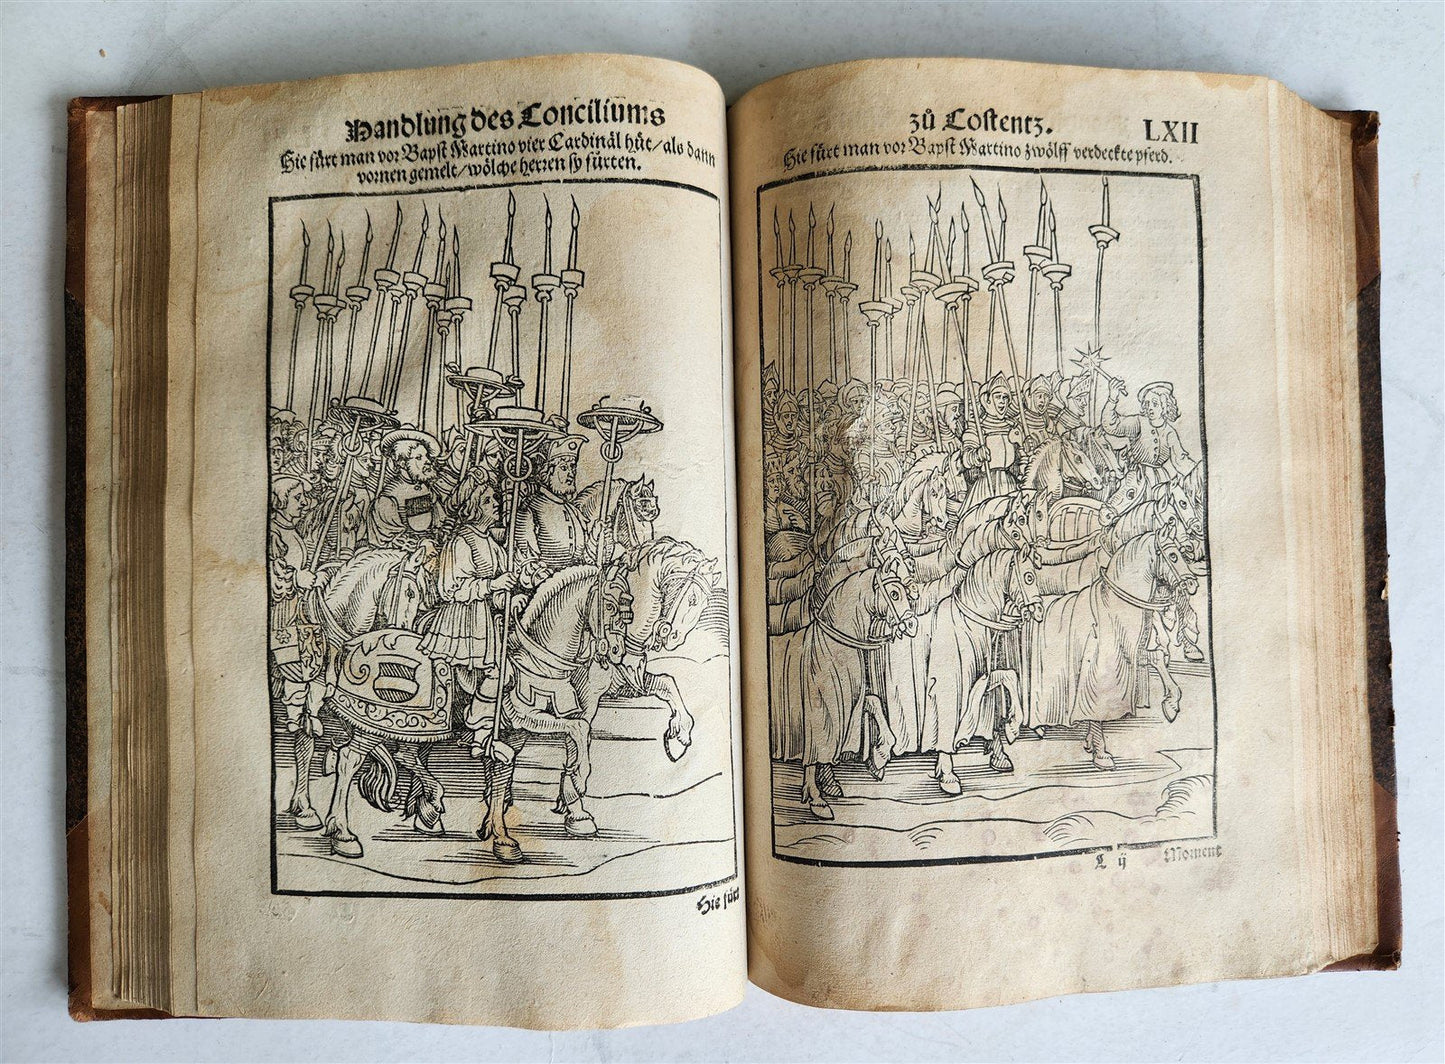 Handlung des Conciliums
Hie fůrt man vor Bapst Martino vier Cardinål hůt/als dann
vornen gemelt/wölche herren sy fůrten.
Hie fůrt
zů Costentz.
LXII
Hie fůrt man vor Bapst Martino zwölff verdeckte pferd.
L ij
Moment